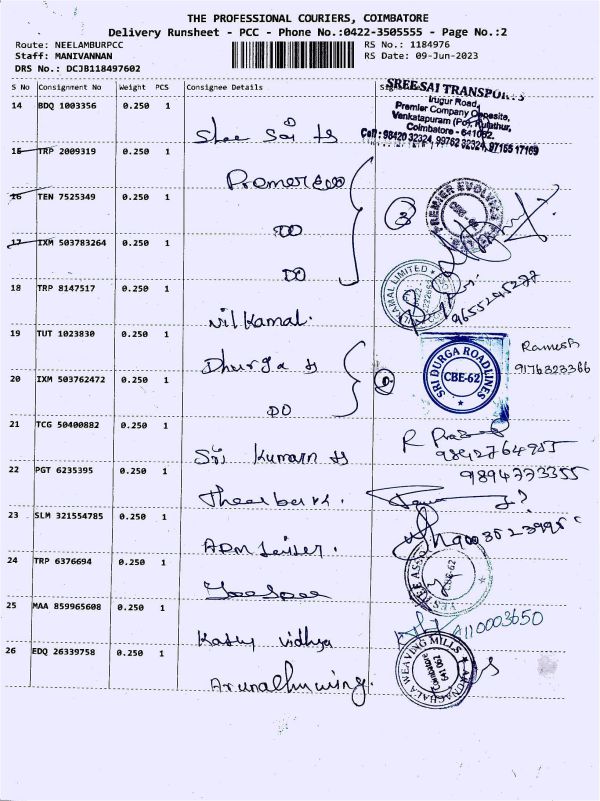 THE PROFESSIONAL COURIERS, COIMBATORE
Delivery Runsheet - PCC - Phone No.:0422-3505555 - Page No.:2
Route: NEELAMBURPCC RS No.: 1184976
Staff: MANIVANNAN RS Date: 09-Jun-2023
DRS No.: DCJB118497602
S No Consignment No Weight PCS Consignee Details
SREE SAI TRANSPORTS
Irugur Road,
Premier Company Opposite,
Venkatapuram (Po), Kulathur,
Coimbatore - 641062.
Cell : 98420 32324, 99762 32324, 97155 17169
14 BDQ 1003356 0.250 1 Shree Sai ts
15 TRP 2009319 0.250 1
16 TEN 7525349 0.250 1 DO 3 PREMIER EVOLVICS
17 IXM 503783264 0.250 1 DO
18 TRP 8147517 0.250 1 Nilkamal. NILKAMAL LIMITED 9655245277
19 TUT 1023830 0.250 1 Dhurga ts SRI DURGA ROADLINES CBE-62 Ramesh
9176323366
20 IXM 503762472 0.250 1 DO
21 TCG 50400882 0.250 1 Sri Kumarn ts
9842764955
22 PGT 6235395 0.250 1 9894773355
23 SLM 321554785 0.250 1
24 TRP 6376694 0.250 1 CBE-62
25 MAA 859965608 0.250 1 Kathy Vidhya
26 EDQ 26339758 0.250 1 ARUNACHALA WEAVING MILLS Coimbatore 641 062